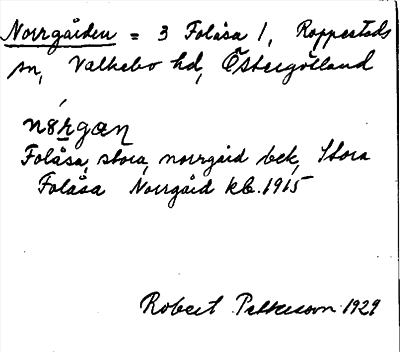 Norrgården = 3 Folåsa 1, Rappestads
sn, Valkebo hd, Östergötland
Folåsa, stora, norrgård bek, Stora
Folåsa Norrgård kb. 1915
Robert Pettersson 1929